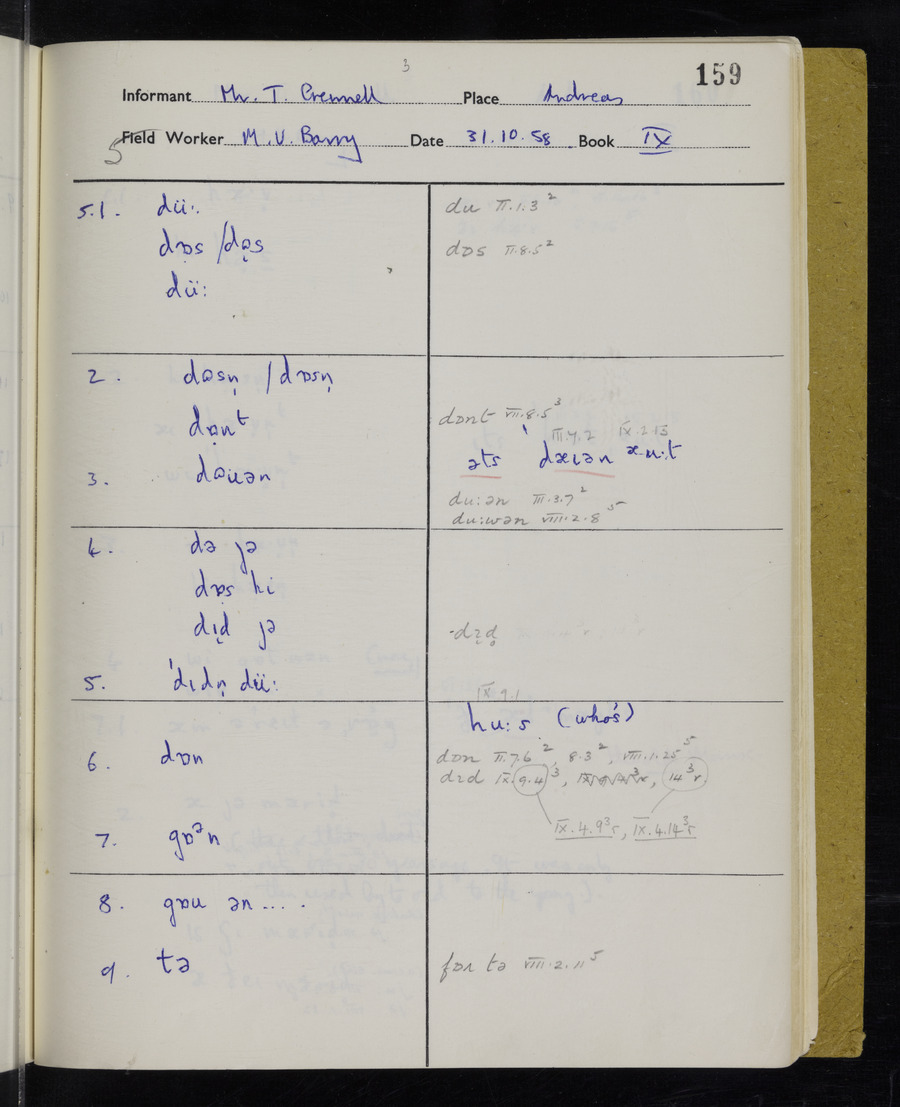 3
159
Informant Mr. T. Crennell Place Andreas
5 Field Worker M.V. Barry Date 31.10.58 Book IX
5.1. dü:. du II.1.3²
dɒ̣s / də̣s dɒs II.8.5²
dü:
2. dɒsṇ / dɒsṇ
dɒ̣nᵗ dɒnt VII.8.5³
III.4.2 IX.2.13
əts dæɪən
3. dɒuən
du:ən III.3.7²
du:wən VIII.2.8⁵
4. də jə
dɒ̣s hi
dɪ̣d jə -dɪ̣d̥
5. ˈdɪdṇ dü: IX.9.1
hu:s (who's)
6. dɒn dɒn II.7.6², 8.3², VIII.1.25⁵
dɪd IX.9.4³, 14³r
IX.4.9³r, IX.4.14³r
7. gɒᵊn
8. gɒu ən ....
9. tə fɒr tə VIII.2.11⁵